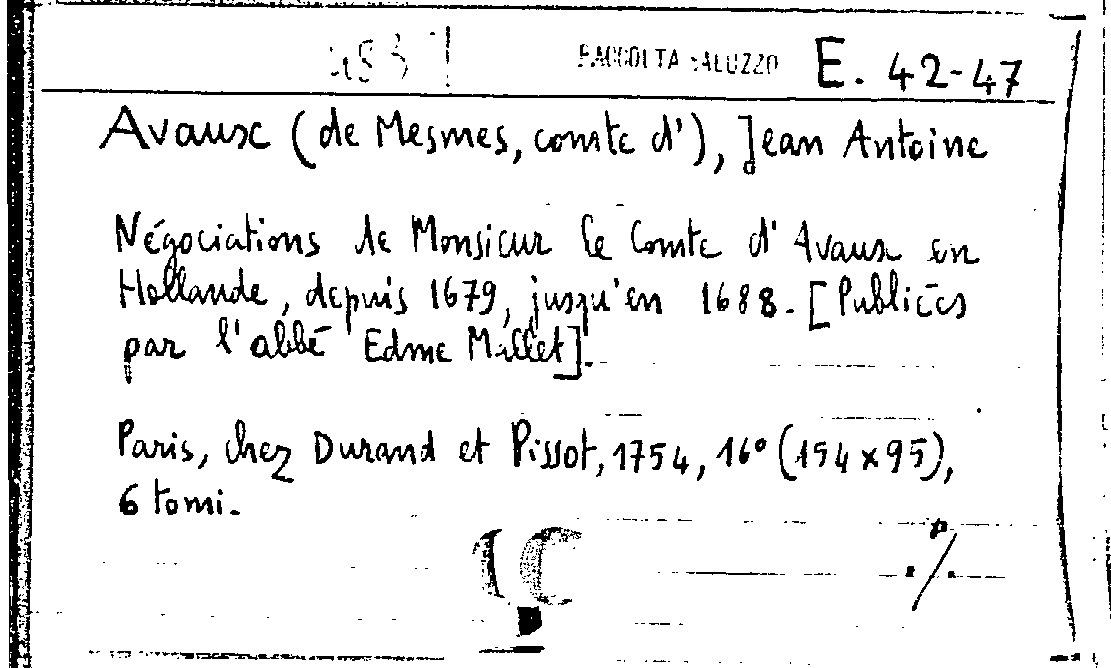 RACCOLTA SALUZZO E. 42-47
Avaux (de Mesmes, comte d'), Jean Antoine
Négociations de Monsieur le Comte d'Avaux en
Hollande, depuis 1679, jusqu'en 1688. [Publiées
par l'abbé Edme Mallet].
Paris, chez Durand et Pissot, 1754, 16° (154 x 95),
6 tomi.
./.